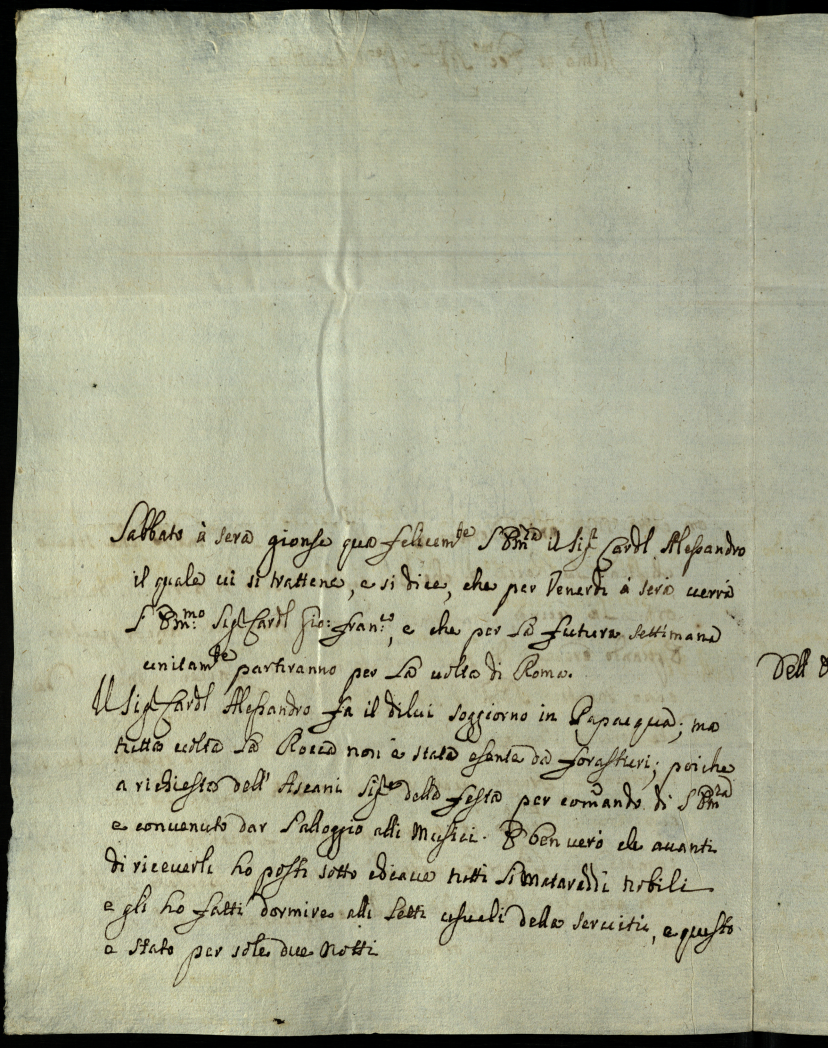 Sabbato à sera gionse qua felicemte S Emza il Sigr Cardl Alessandro
il quale vi si trattene, e si dice, che per Venerdi à sera verrà
l' Emmo Sigr Cardl Gio: Franco, e che per la futura settimana
unitamte partiranno per la volta di Roma.
Il Sigr Cardl Alessandro fa il dilui soggiorno in Papacqua; ma
tutta volta la Rocca non è stata esente da forastieri; poiche
a richiesta dell' Ascani Sigre della festa per comando di S Emza
e convenuto dar l'alloggio alli Musici. E ben vero che avanti
Dell
di riceverli ho posti sotto chiave tutti li Matarazzi nobili
e gli ho fatti dormire alli letti usuali della servitù, e questo
e stato per sole due notti